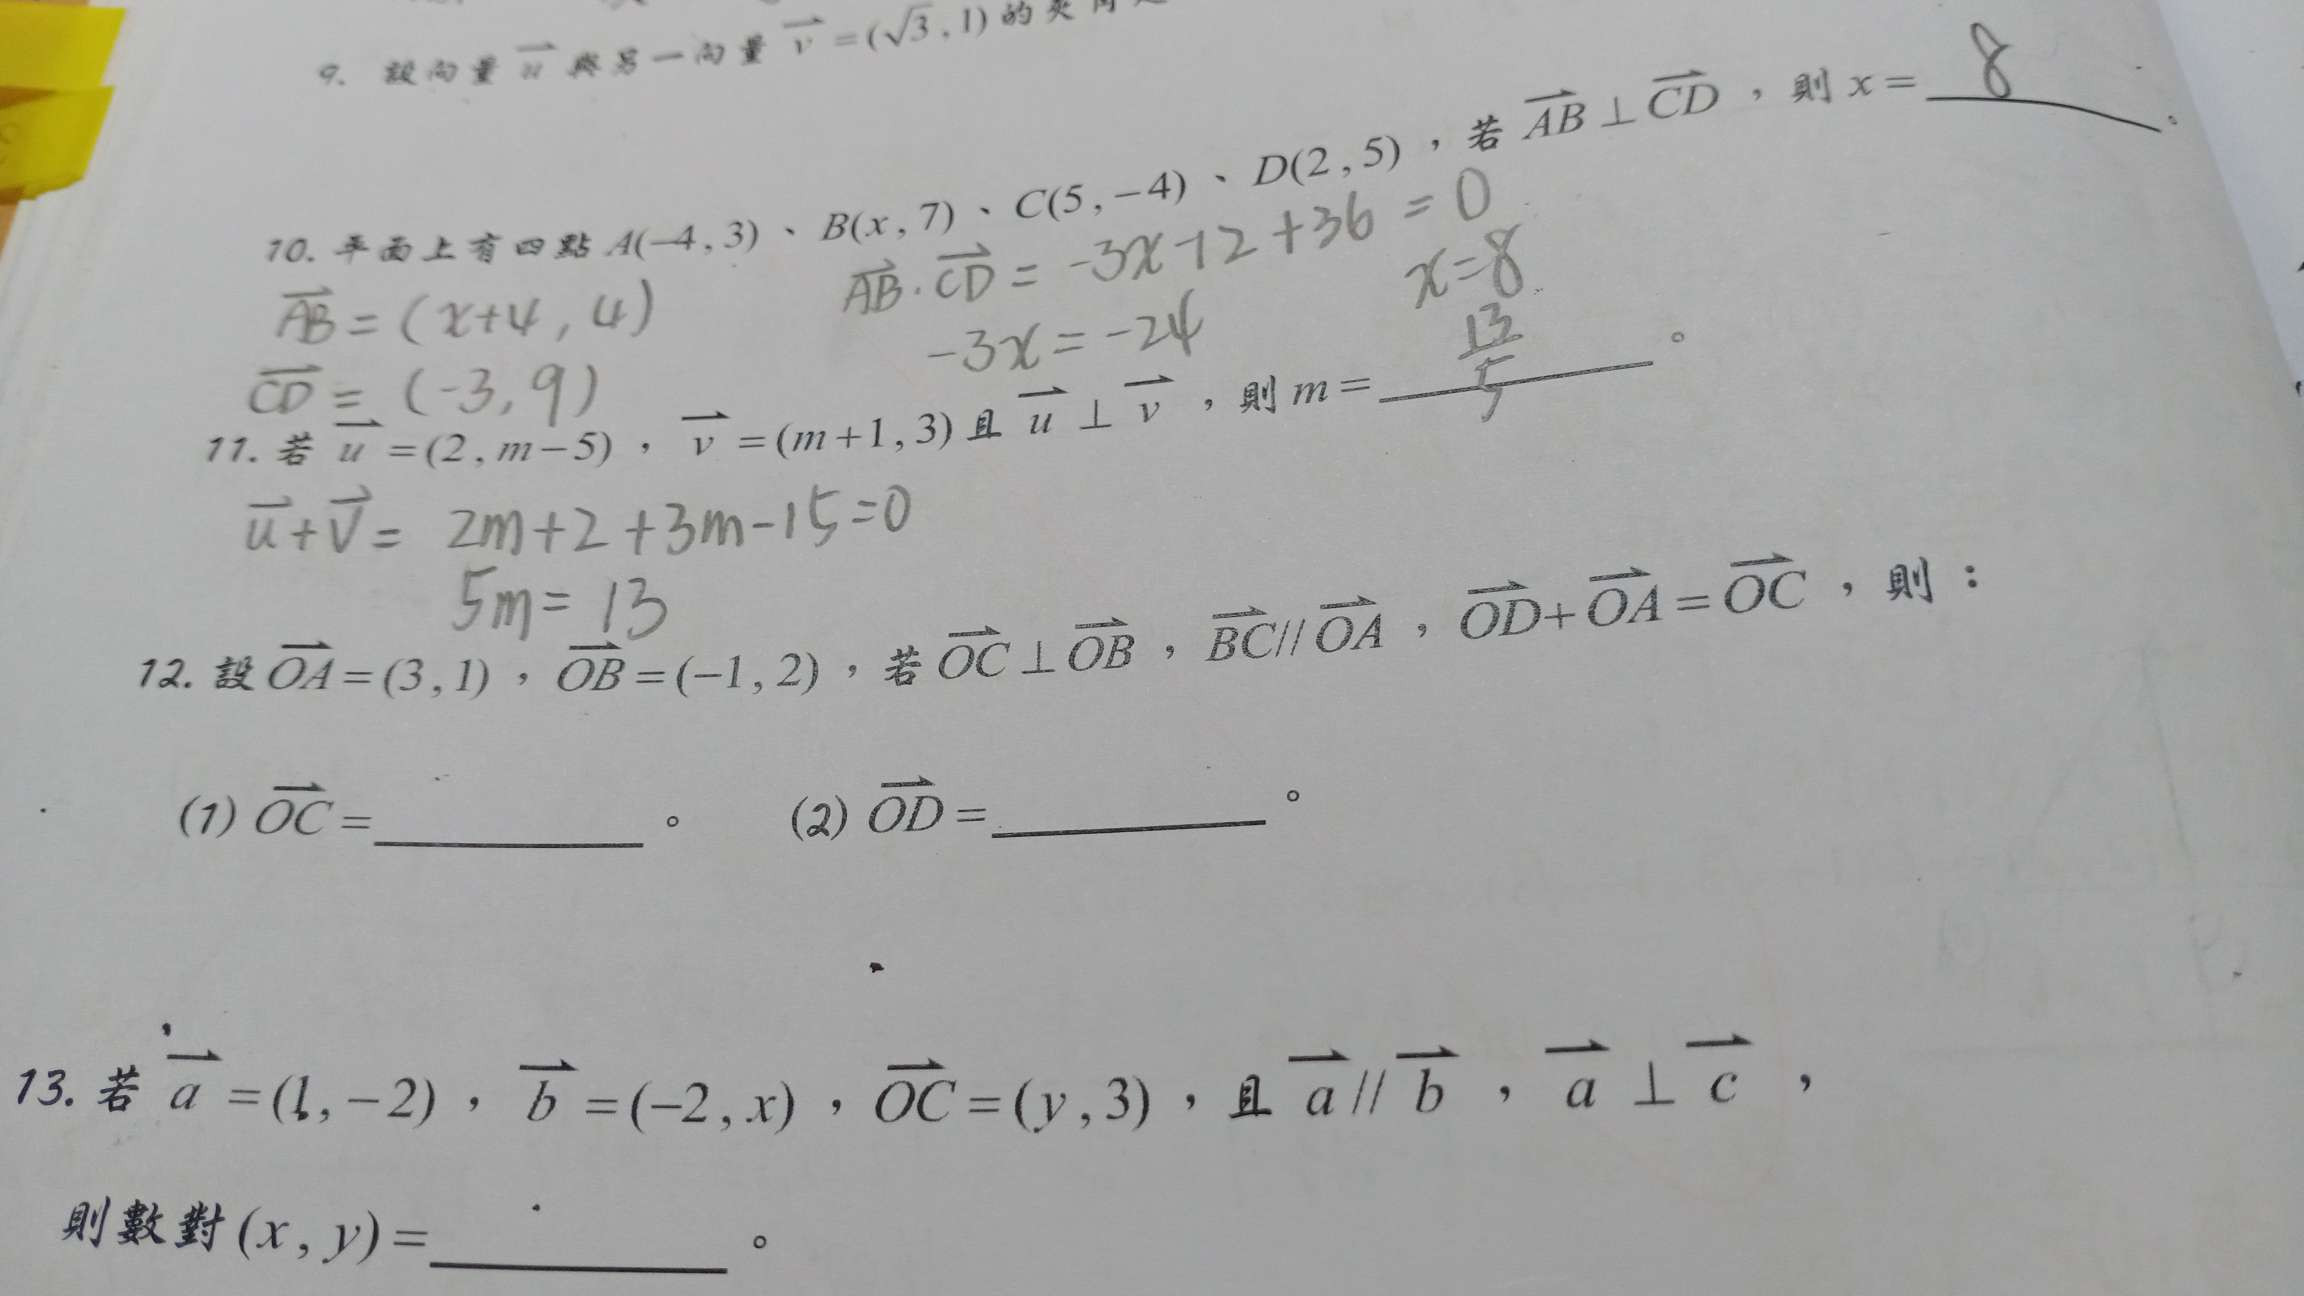 9. 設向量 u 與另一向量 v =(√3 , 1) 的夾角
10. 平面上有四點 A(−4 , 3)、B(x , 7)、C(5 , −4)、D(2 , 5)，若 AB⊥CD，則 x = 8 。
AB = (x+4, 4)
AB · CD = -3x-12+36 = 0
CD = (-3, 9)
-3x = -24
x=8
11. 若 u =(2 , m−5)，v =(m+1 , 3) 且 u ⊥ v，則 m = 13/5 。
u+v = 2m+2+3m-15=0
5m = 13
12. 設 OA=(3 , 1)，OB=(−1 , 2)，若 OC⊥OB，BC//OA，OD+OA=OC，則：
(1) OC= 。 (2) OD= 。
13. 若 a =(1, −2)，b =(−2 , x)，OC=(y , 3)，且 a // b，a ⊥ c，
則數對(x , y)= 。